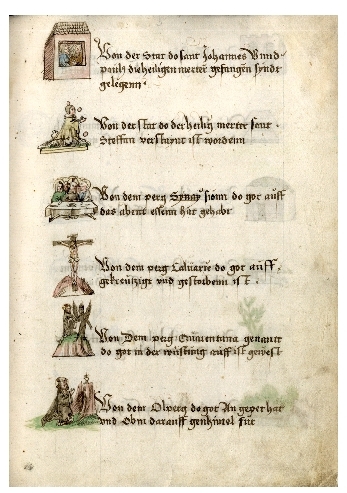 Von der Stat do sant Johannes Vnnd
pauls die heiligen merter gefangen syndt
gelegenn
Von der stat do der heilig merter sant
Steffan verstaynt ist wordenn
Von dem perg Synay sionn do got auff
das abent essenn hat gehabt
Von dem perg Caluarie do got auff
gekreutzigt vnd gestorbenn ist
Von Dem perg genant
do got in der wustung auff ist gewest
Von dem Olperg do got An gepet hat
vnd Obnn darauff genhimel fur